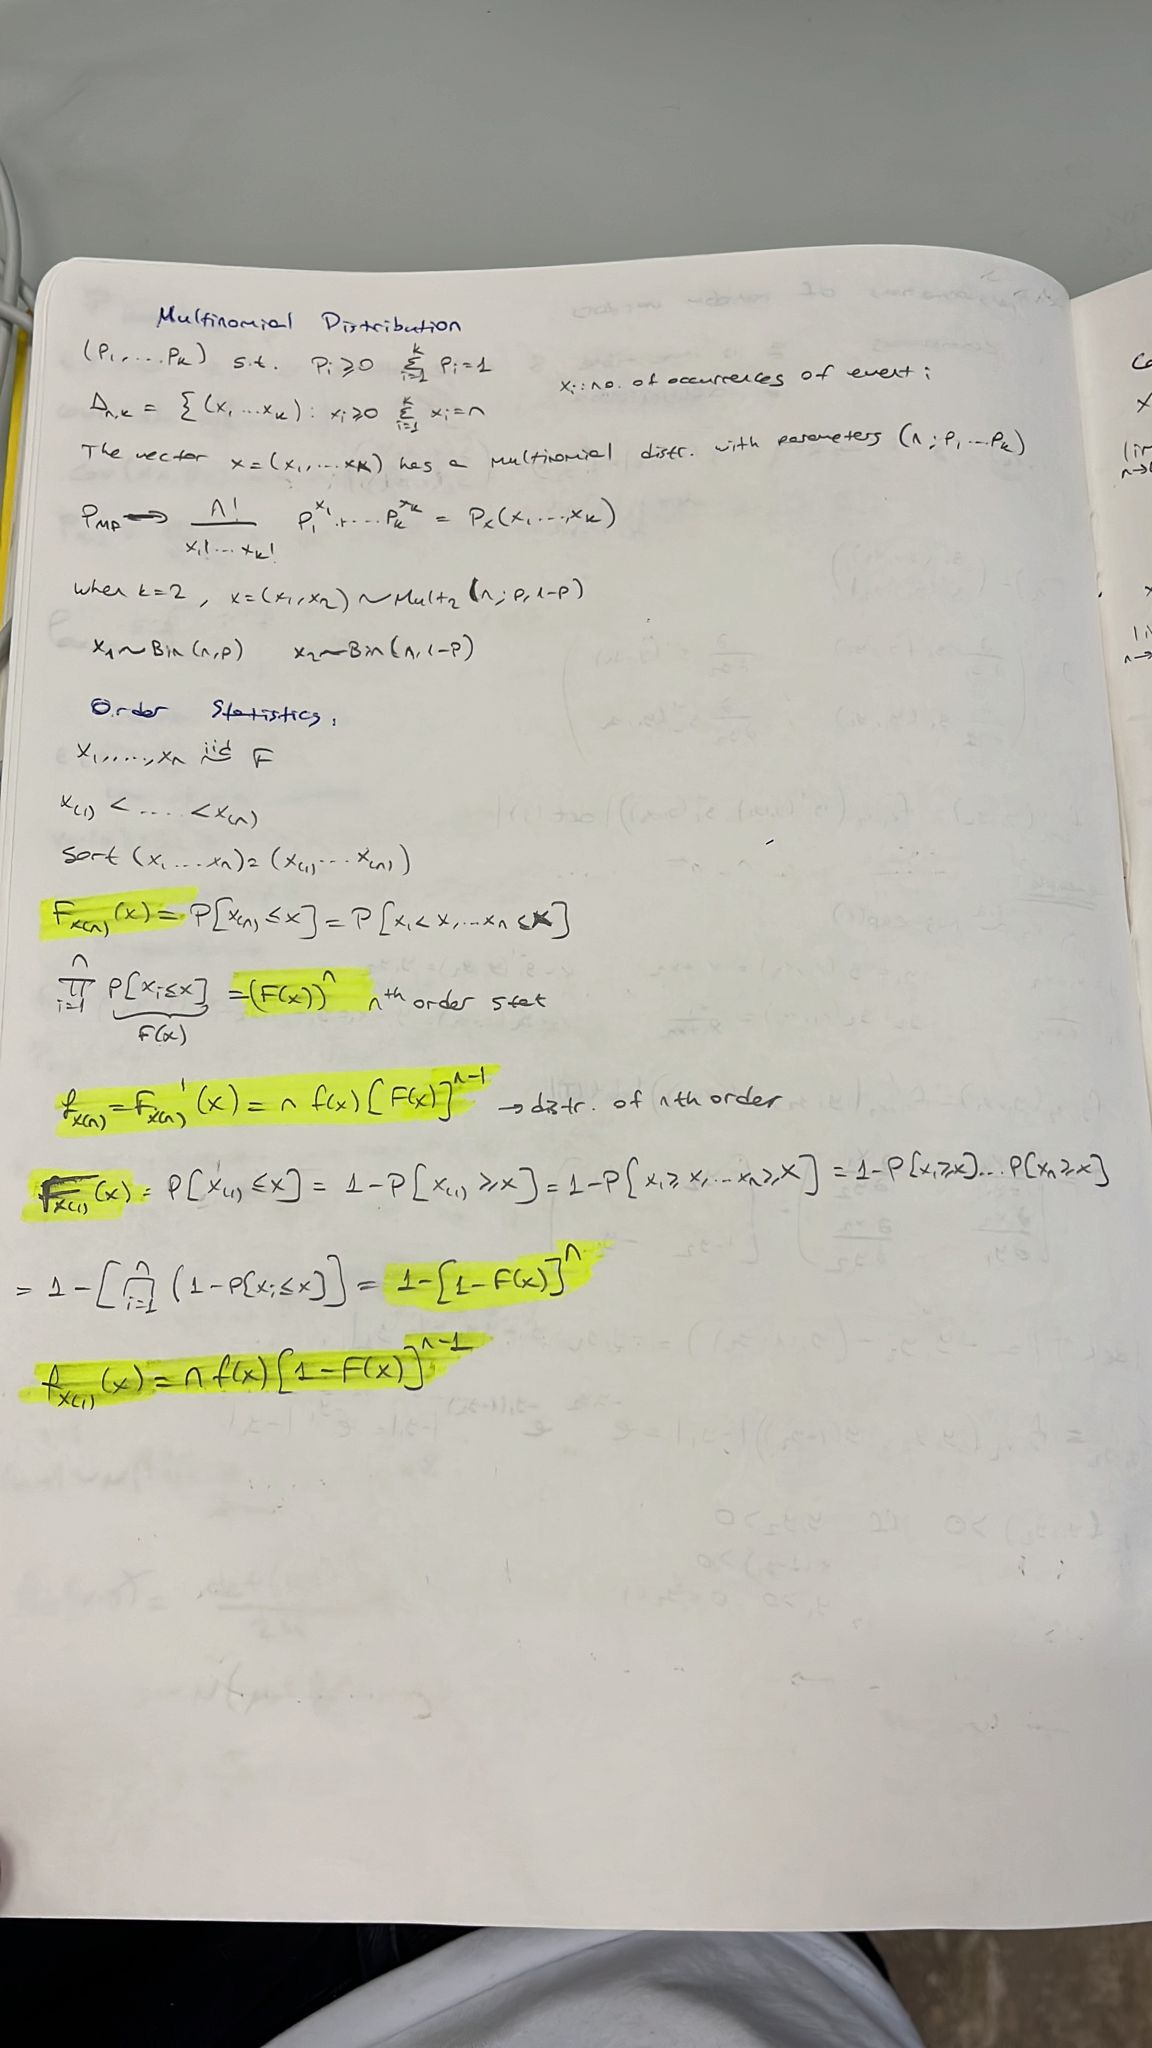 Multinomial Distribution
(P₁, ... Pₖ) s.t. Pᵢ ≥ 0 Σᵢ₌₁ᵏ Pᵢ = 1
xᵢ: no. of occurrences of event i
Δₙ,ₖ = { (x₁ ... xₖ) : xᵢ ≥ 0 Σᵢ₌₁ᵏ xᵢ = n
The vector x = (x₁, ... xₖ) has a multinomial distr. with parameters (n; P₁ ... Pₖ)
P_MF → n! / (x₁! ... xₖ!) P₁^x₁ . ... Pₖ^xₖ = Pₓ(x₁ ..., xₖ)
when k=2, x=(x₁, x₂) ~ Mult₂ (n; p, 1-p)
x₁ ~ Bin(n, p) x₂ ~ Bin(n, 1-p)
Order Statistics:
x₁, ...., xₙ iid ~ F
x₍₁₎ < .... < x₍ₙ₎
sort (x₁ ... xₙ) = (x₍₁₎ ... x₍ₙ₎)
F_x₍ₙ₎(x) = P[x₍ₙ₎ ≤ x] = P[x₁ < x, ... xₙ ≤ x]
∏ᵢ₌₁ⁿ P[xᵢ ≤ x] = (F(x))ⁿ nᵗʰ order stat
F(x)
f_x₍ₙ₎ = F_x₍ₙ₎'(x) = n f(x) [F(x)]ⁿ⁻¹ → distr. of nth order
F_x₍₁₎(x) = P[x₍₁₎ ≤ x] = 1 - P[x₍₁₎ ≥ x] = 1 - P[x₁ ≥ x, ... xₙ ≥ x] = 1 - P[x₁ ≥ x] ... P[xₙ ≥ x]
= 1 - [∏ᵢ₌₁ⁿ (1 - P[xᵢ ≤ x]] = 1 - [1 - F(x)]ⁿ
f_x₍₁₎(x) = n f(x) [1 - F(x)]ⁿ⁻¹